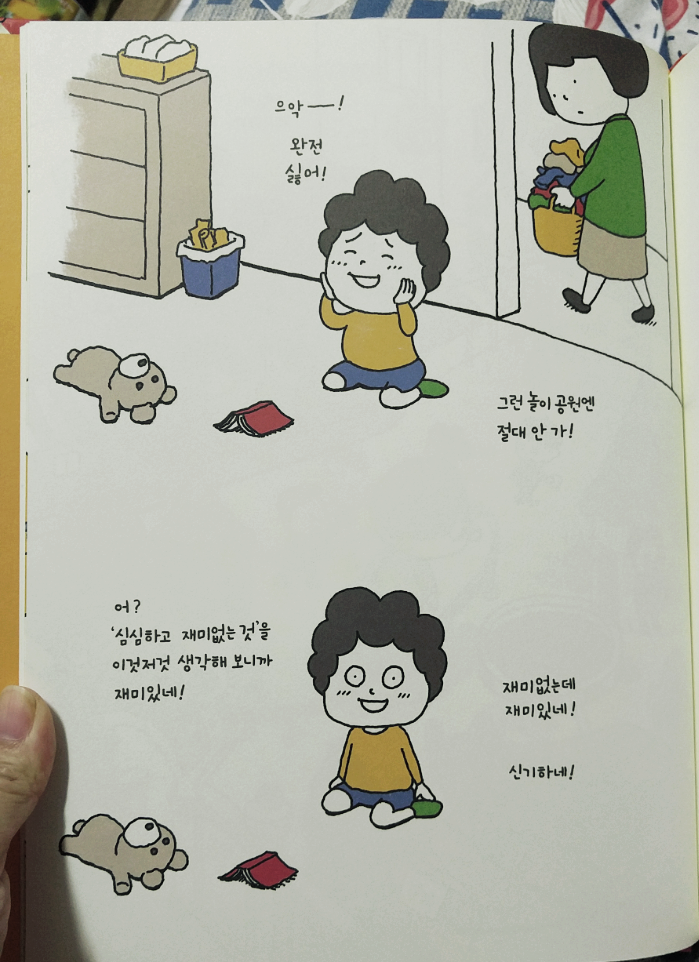 으악 ──!
완전
싫어!
그런 놀이 공원엔
절대 안 가!
어?
'심심하고 재미없는 것'을
이것저것 생각해 보니까
재미있네!
재미없는데
재미있네!
신기하네!